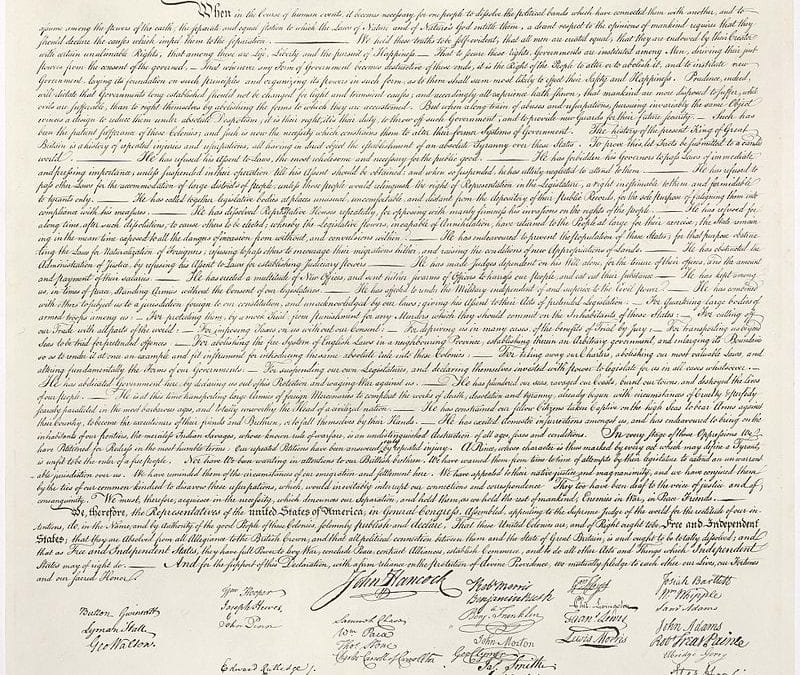 When in the Course of human events, it becomes necessary for one people to dissolve the political bands which have connected them with another, and to
assume among the powers of the earth, the separate and equal station to which the Laws of Nature and of Nature's God entitle them, a decent respect to the opinions of mankind requires that they
should declare the causes which impel them to the separation. — We hold these truths to be self-evident, that all men are created equal, that they are endowed by their Creator
with certain unalienable Rights, that among these are Life, Liberty and the pursuit of Happiness. — That to secure these rights, Governments are instituted among Men, deriving their just
powers from the consent of the governed, — That whenever any Form of Government becomes destructive of these ends, it is the Right of the People to alter or to abolish it, and to institute new
Government, laying its foundation on such principles and organizing its powers in such form, as to them shall seem most likely to effect their Safety and Happiness. Prudence, indeed,
will dictate that Governments long established should not be changed for light and transient causes; and accordingly all experience hath shewn, that mankind are more disposed to suffer, while
evils are sufferable, than to right themselves by abolishing the forms to which they are accustomed. But when a long train of abuses and usurpations, pursuing invariably the same Object
evinces a design to reduce them under absolute Despotism, it is their right, it is their duty, to throw off such Government, and to provide new Guards for their future security. — Such has
been the patient sufferance of these Colonies; and such is now the necessity which constrains them to alter their former Systems of Government. The history of the present King of Great
Britain is a history of repeated injuries and usurpations, all having in direct object the establishment of an absolute Tyranny over these States. To prove this, let Facts be submitted to a candid
world. — He has refused his Assent to Laws, the most wholesome and necessary for the public good. — He has forbidden his Governors to pass Laws of immediate
and pressing importance, unless suspended in their operation till his Assent should be obtained; and when so suspended, he has utterly neglected to attend to them. — He has refused to
pass other Laws for the accommodation of large districts of people, unless those people would relinquish the right of Representation in the Legislature, a right inestimable to them and formidable
to tyrants only. — He has called together legislative bodies at places unusual, uncomfortable, and distant from the depository of their public Records, for the sole purpose of fatiguing them into
compliance with his measures. — He has dissolved Representative Houses repeatedly, for opposing with manly firmness his invasions on the rights of the people. — He has refused for
a long time, after such dissolutions, to cause others to be elected; whereby the Legislative powers, incapable of Annihilation, have returned to the People at large for their exercise; the State remain-
ing in the mean time exposed to all the dangers of invasion from without, and convulsions within. — He has endeavoured to prevent the population of these States; for that purpose obstruc-
ting the Laws for Naturalization of Foreigners; refusing to pass others to encourage their migrations hither, and raising the conditions of new Appropriations of Lands. — He has obstructed the
Administration of Justice, by refusing his Assent to Laws for establishing Judiciary powers. — He has made Judges dependent on his Will alone, for the tenure of their offices, and the amount
and payment of their salaries. — He has erected a multitude of New Offices, and sent hither swarms of Officers to harrass our people, and eat out their substance. — He has kept among
us, in times of peace, Standing Armies without the Consent of our legislatures. — He has affected to render the Military independent of and superior to the Civil power. — He has combined
with others to subject us to a jurisdiction foreign to our constitution, and unacknowledged by our laws; giving his Assent to their Acts of pretended Legislation: — For Quartering large bodies of
armed troops among us: — For protecting them, by a mock Trial, from punishment for any Murders which they should commit on the Inhabitants of these States: — For cutting off
our Trade with all parts of the world: — For imposing Taxes on us without our Consent: — For depriving us in many cases, of the benefits of Trial by Jury: — For transporting us beyond
Seas to be tried for pretended offences: — For abolishing the free System of English Laws in a neighbouring Province, establishing therein an Arbitrary government, and enlarging its Boundaries
so as to render it at once an example and fit instrument for introducing the same absolute rule into these Colonies: — For taking away our Charters, abolishing our most valuable Laws, and
altering fundamentally the Forms of our Governments: — For suspending our own Legislatures, and declaring themselves invested with power to legislate for us in all cases whatsoever. —
He has abdicated Government here, by declaring us out of his Protection and waging War against us. — He has plundered our seas, ravaged our Coasts, burnt our towns, and destroyed the lives
of our people. — He is at this time transporting large Armies of foreign Mercenaries to compleat the works of death, desolation and tyranny, already begun with circumstances of Cruelty & perfidy
scarcely paralleled in the most barbarous ages, and totally unworthy the Head of a civilized nation. — He has constrained our fellow Citizens taken Captive on the high Seas to bear Arms against
their Country, to become the executioners of their friends and Brethren, or to fall themselves by their Hands. — He has excited domestic insurrections amongst us, and has endeavoured to bring on the
inhabitants of our frontiers, the merciless Indian Savages, whose known rule of warfare, is an undistinguished destruction of all ages, sexes and conditions. In every stage of these Oppressions We
have Petitioned for Redress in the most humble terms: Our repeated Petitions have been answered only by repeated injury. A Prince, whose character is thus marked by every act which may define a Tyrant,
is unfit to be the ruler of a free people. Nor have We been wanting in attentions to our Brittish brethren. We have warned them from time to time of attempts by their legislature to extend an unwarrant-
able jurisdiction over us. We have reminded them of the circumstances of our emigration and settlement here. We have appealed to their native justice and magnanimity, and we have conjured them
by the ties of our common kindred to disavow these usurpations, which, would inevitably interrupt our connections and correspondence. They too have been deaf to the voice of justice and of
consanguinity. We must, therefore, acquiesce in the necessity, which denounces our Separation, and hold them, as we hold the rest of mankind, Enemies in War, in Peace Friends. —
We, therefore, the Representatives of the united States of America, in General Congress, Assembled, appealing to the Supreme Judge of the world for the rectitude of our in-
tentions, do, in the Name, and by Authority of the good People of these Colonies, solemnly publish and declare, That these United Colonies are, and of Right ought to be Free and Independent
States; that they are Absolved from all Allegiance to the British Crown, and that all political connection between them and the State of Great Britain, is and ought to be totally dissolved; and
that as Free and Independent States, they have full Power to levy War, conclude Peace, contract Alliances, establish Commerce, and to do all other Acts and Things which Independent
States may of right do. — And for the support of this Declaration, with a firm reliance on the protection of divine Providence, we mutually pledge to each other our Lives, our Fortunes
and our sacred Honor.
Button Gwinnett
Lyman Hall
Geo Walton.
Wm Hooper
Joseph Hewes,
John Penn
Edward Rutledge
John Hancock
Samuel Chase
Wm Paca
Thos Stone
Charles Carroll of Carrollton
Robt Morris
Benjamin Rush
Benj. Franklin
John Morton
Geo Clymer
Jas. Smith
Wm Floyd
Phil. Livingston
Frans. Lewis
Lewis Morris
Josiah Bartlett
Wm Whipple
Saml Adams
John Adams
Robt Treat Paine
Elbridge Gerry